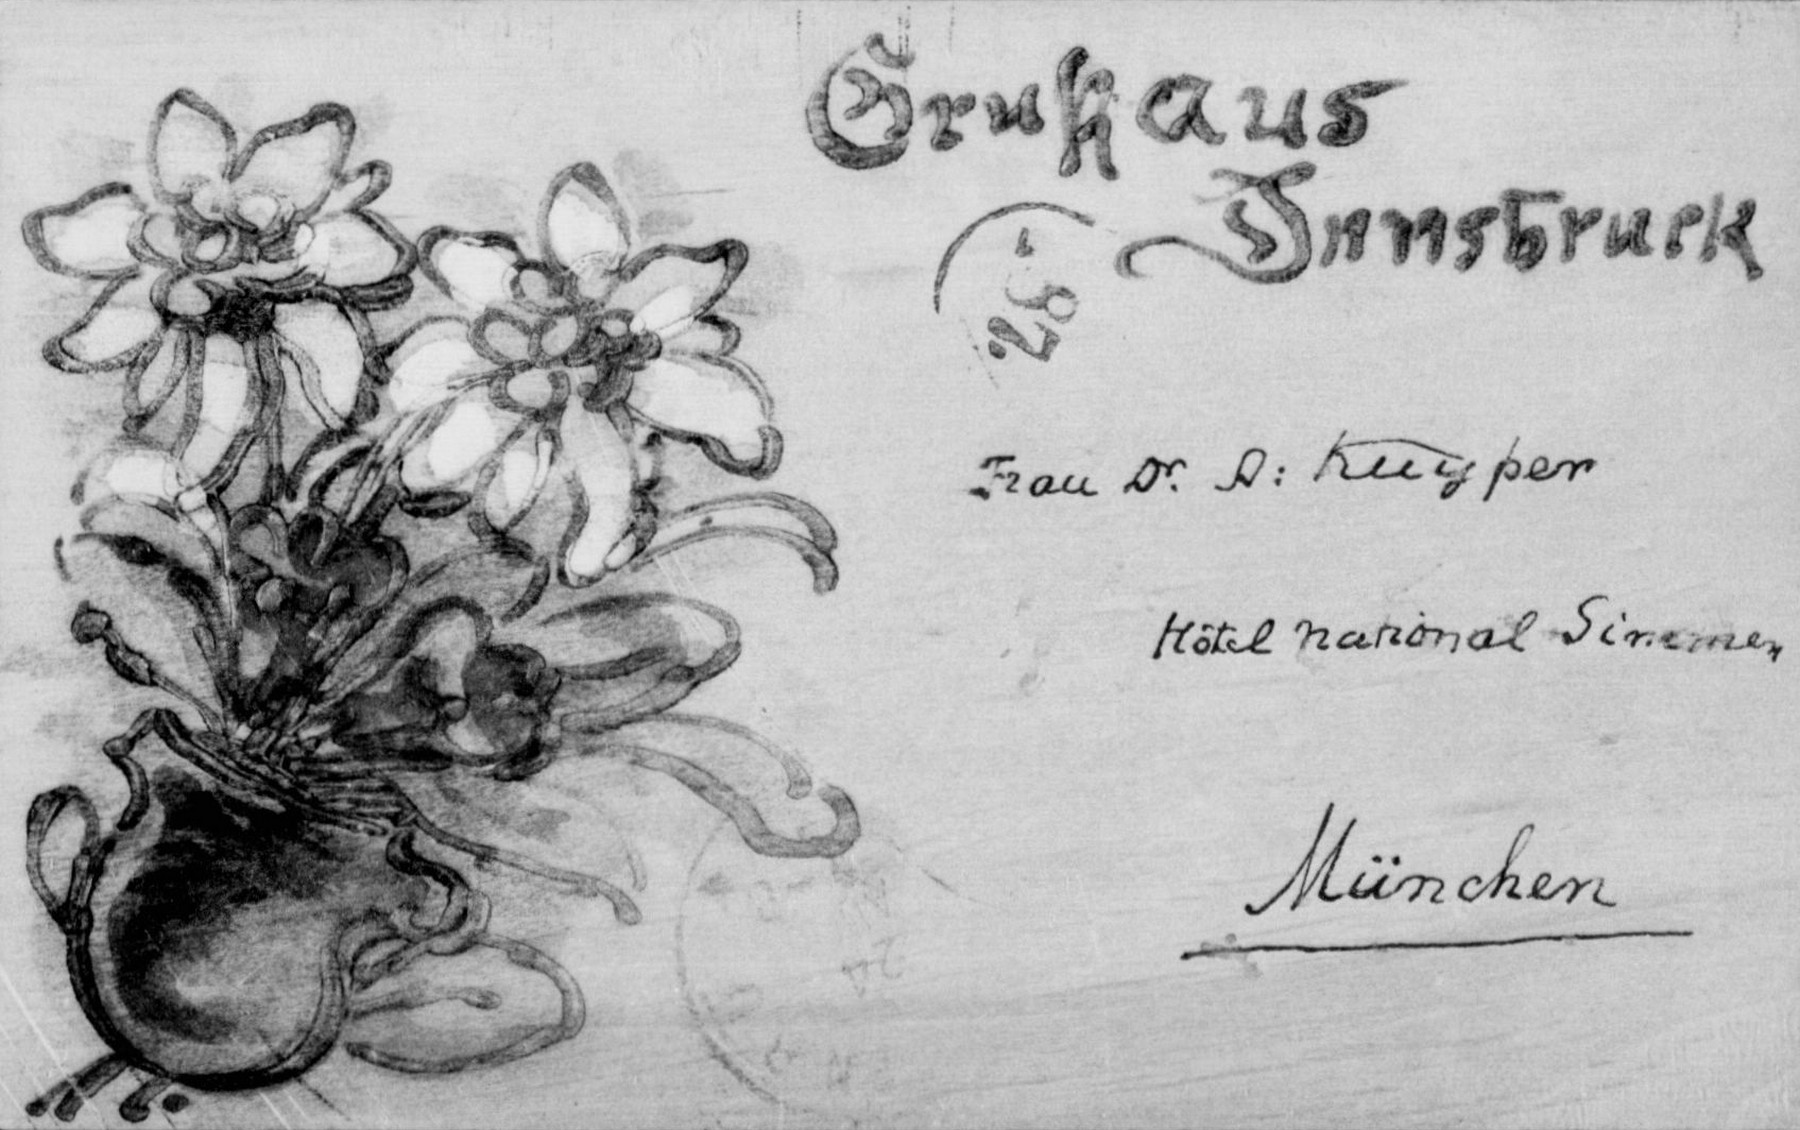 Gruß aus
Innsbruck
Frau Dr. A: Kuyper
Hôtel national Simmen
München